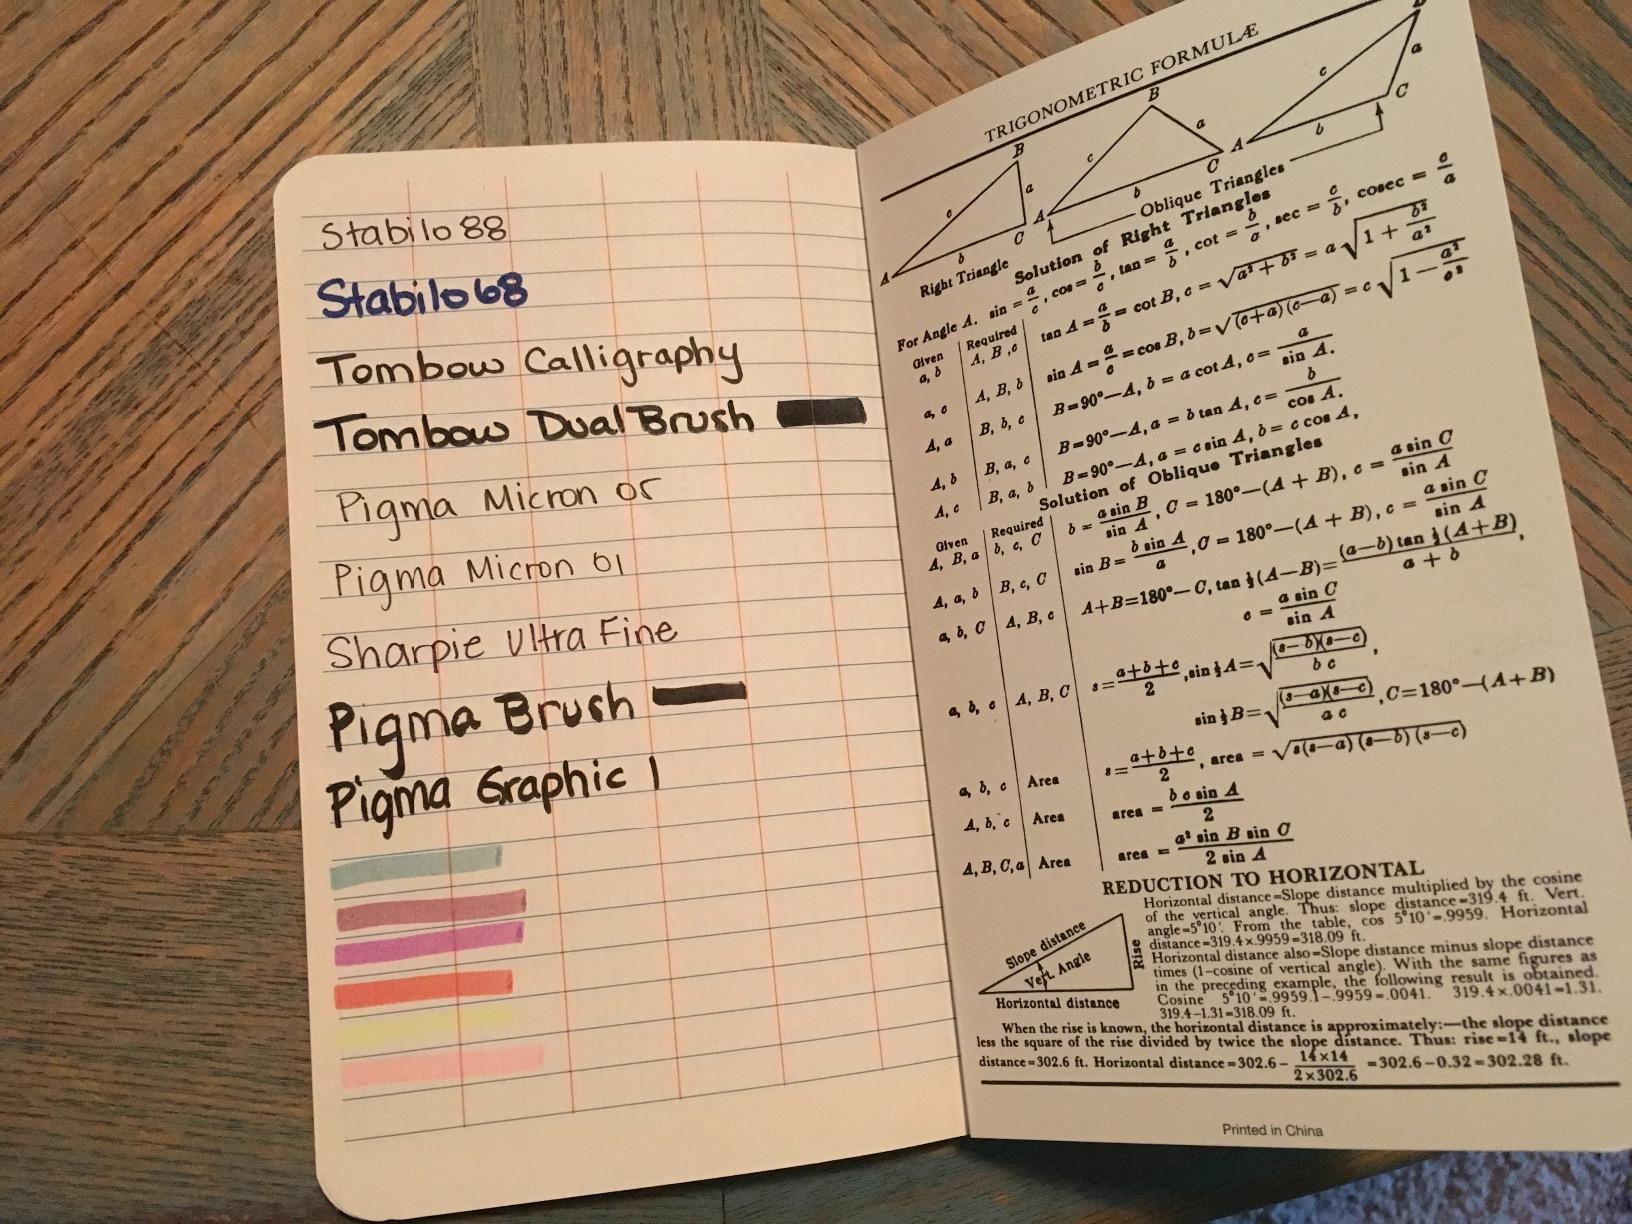 Stabilo 88
Stabilo 68
Tombow Calligraphy
Tombow Dual Brush
Pigma Micron 05
Pigma Micron 01
Sharpie Ultra Fine
Pigma Brush
Pigma Graphic 1
TRIGONOMETRIC FORMULÆ
B B B
c a c a c a
A b C A b C A b C
Right Triangle Oblique Triangles
Solution of Right Triangles
For Angle A. sin = a/c, cos = b/c, tan = a/b, cot = b/a, sec = c/b, cosec = c/a
Given Required
a, b A, B, c tan A = a/b = cot B, c = √(a² + b²) = a √(1 + b²/a²)
a, c A, B, b sin A = a/c = cos B, b = √((c+a)(c−a)) = c √(1 − a²/c²)
A, a B, b, c B=90°−A, b = a cot A, c = a/sin A.
A, b B, a, c B=90°−A, a = b tan A, c = b/cos A.
A, c B, a, b B=90°−A, a = c sin A, b = c cos A,
Solution of Oblique Triangles
Given Required
A, B, a b, c, C b = a sin B/sin A, C = 180°−(A + B), c = a sin C/sin A
A, a, b B, c, C sin B = b sin A/a, C = 180°−(A + B), c = a sin C/sin A
a, b, C A, B, c A+B=180°−C, tan ½(A−B) = (a−b) tan ½(A+B)/a + b,
c = a sin C/sin A
a, b, c A, B, C s = a+b+c/2, sin ½A = √((s−b)(s−c)/b c),
sin ½B = √((s−a)(s−c)/a c), C=180°−(A+B)
a, b, c Area s = a+b+c/2, area = √(s(s−a)(s−b)(s−c))
A, b, c Area area = b c sin A/2
A, B, C, a Area area = a² sin B sin C/2 sin A
REDUCTION TO HORIZONTAL
Slope distance
Vert. Angle
Rise
Horizontal distance
Horizontal distance=Slope distance multiplied by the cosine
of the vertical angle. Thus: slope distance=319.4 ft. Vert.
angle=5°10'. From the table, cos 5°10'=.9959. Horizontal
distance=319.4×.9959=318.09 ft.
Horizontal distance also=Slope distance minus slope distance
times (1−cosine of vertical angle). With the same figures as
in the preceding example, the following result is obtained.
Cosine 5°10'=.9959.1−.9959=.0041. 319.4×.0041=1.31.
319.4−1.31=318.09 ft.
When the rise is known, the horizontal distance is approximately:—the slope distance
less the square of the rise divided by twice the slope distance. Thus: rise=14 ft., slope
distance=302.6 ft. Horizontal distance=302.6− 14×14/2×302.6 =302.6−0.32=302.28 ft.
Printed in China